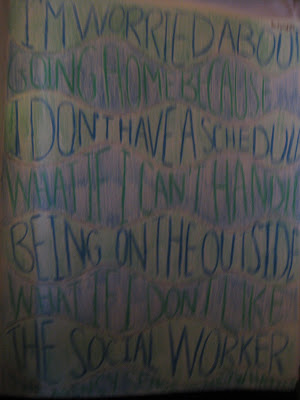 I'M WORRIED ABOU
GOING HOME BECAUSE
I DON'T HAVE A SCHEDUL
WHAT IF I CAN'T HANDL
BEING ON THE OUTSIDE
WHAT IF I DON'T LIKE
THE SOCIAL WORKER